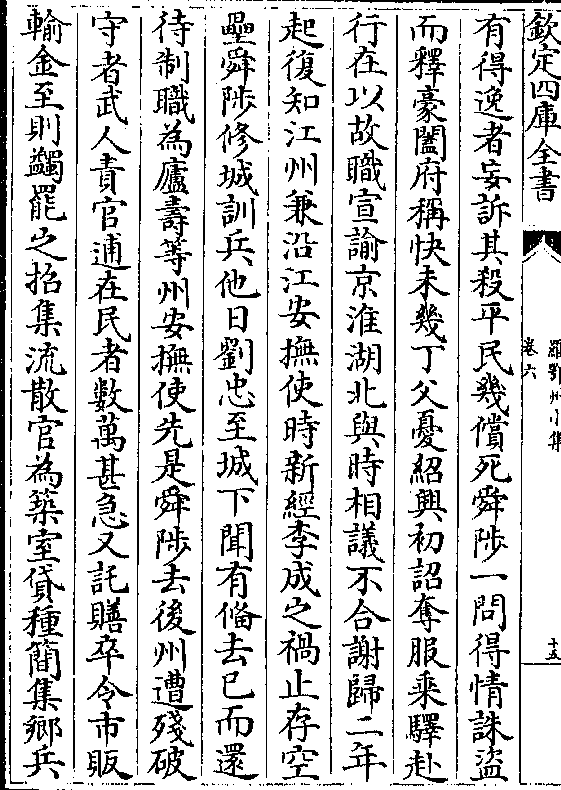 欽定四庫全書
羅鄂州小集
卷六
十五
有得逸者妄訴其殺平民幾償死舜陟一問得情誅盜
而釋豪闔府稱快未幾丁父憂紹興初詔奪服乘驛赴
行在以故職宣諭京淮湖北與時相議不合謝歸二年
起復知江州兼沿江安撫使時新經李成之禍止存空
壘舜陟修城訓兵他日劉忠至城下聞有僃去已而還
待制職為廬壽等州安撫使先是舜陟去後州遭殘破
守者武人責官逋在民者數萬甚急又託贍卒令市販
輸金至則蠲罷之招集流散官為築室貸種蕳集鄉兵